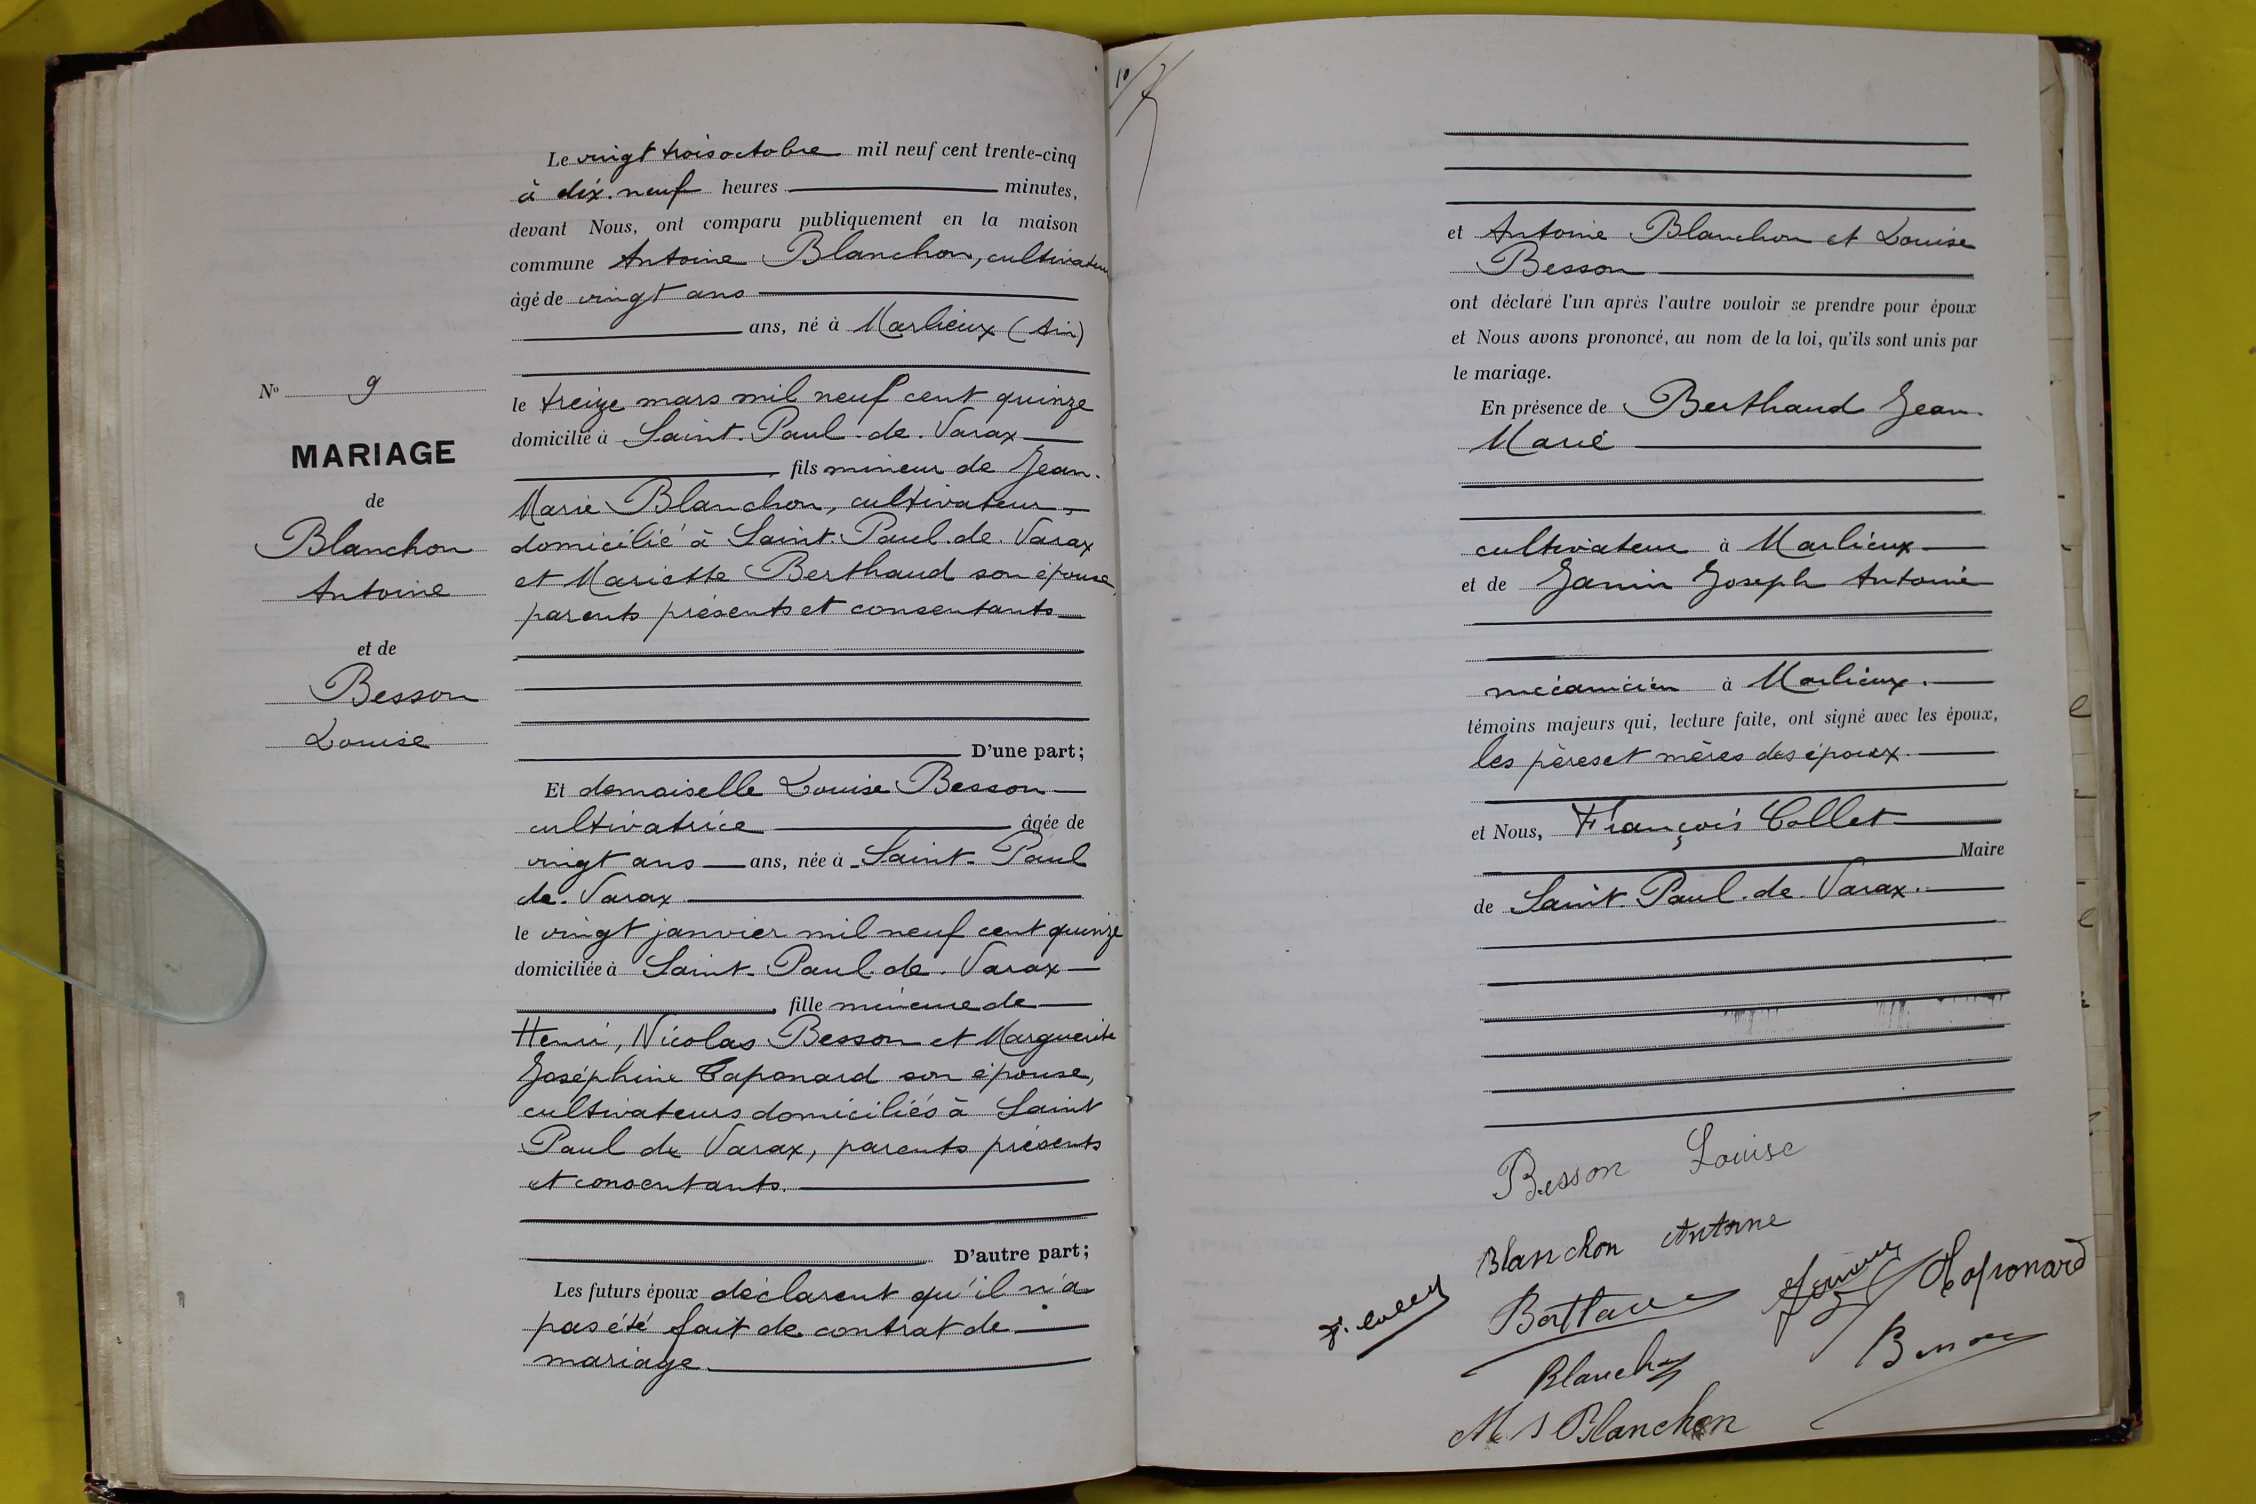 Le vingt trois octobre mil neuf cent trente-cinq
à dix-neuf heures minutes,
devant Nous, ont comparu publiquement en la maison
commune Antoine Blanchon, cultivateur
âgé de vingt ans
ans, né à Marlieux (Ain)
le treize mars mil neuf cent quinze
domicilié à Saint-Paul-de-Varax
fils mineur de Jean-
Marie Blanchon, cultivateur,
domicilié à Saint-Paul-de-Varax
et Mariette Berthaud son épouse,
parents présents et consentants
D'une part;
Et demoiselle Louise Besson
cultivatrice âgée de
vingt ans ans, née à Saint-Paul
de-Varax
le vingt janvier mil neuf cent quinze
domiciliée à Saint-Paul-de-Varax
fille mineure de
Henri, Nicolas Besson et Marguerite
Joséphine Caponard son épouse,
cultivateurs domiciliés à Saint
Paul de Varax, parents présents
et consentants.
D'autre part;
Les futurs époux déclarent qu'il n'a
pas été fait de contrat de
mariage.
N° 9
MARIAGE
de
Blanchon
Antoine
et de
Besson
Louise
10
et Antoine Blanchon et Louise
Besson
ont déclaré l'un après l'autre vouloir se prendre pour époux
et Nous avons prononcé, au nom de la loi, qu'ils sont unis par
le mariage.
En présence de Berthaud Jean-
Marie
cultivateur à Marlieux
et de Janin Joseph Antoine
mécanicien à Marlieux.
témoins majeurs qui, lecture faite, ont signé avec les époux,
les pères et mères des époux.
et Nous, François Collet
Maire
de Saint-Paul-de-Varax.
Besson Louise
Blanchon Antoine
F. Collet
Caponard
Blanchon
Besson
M Blanchon